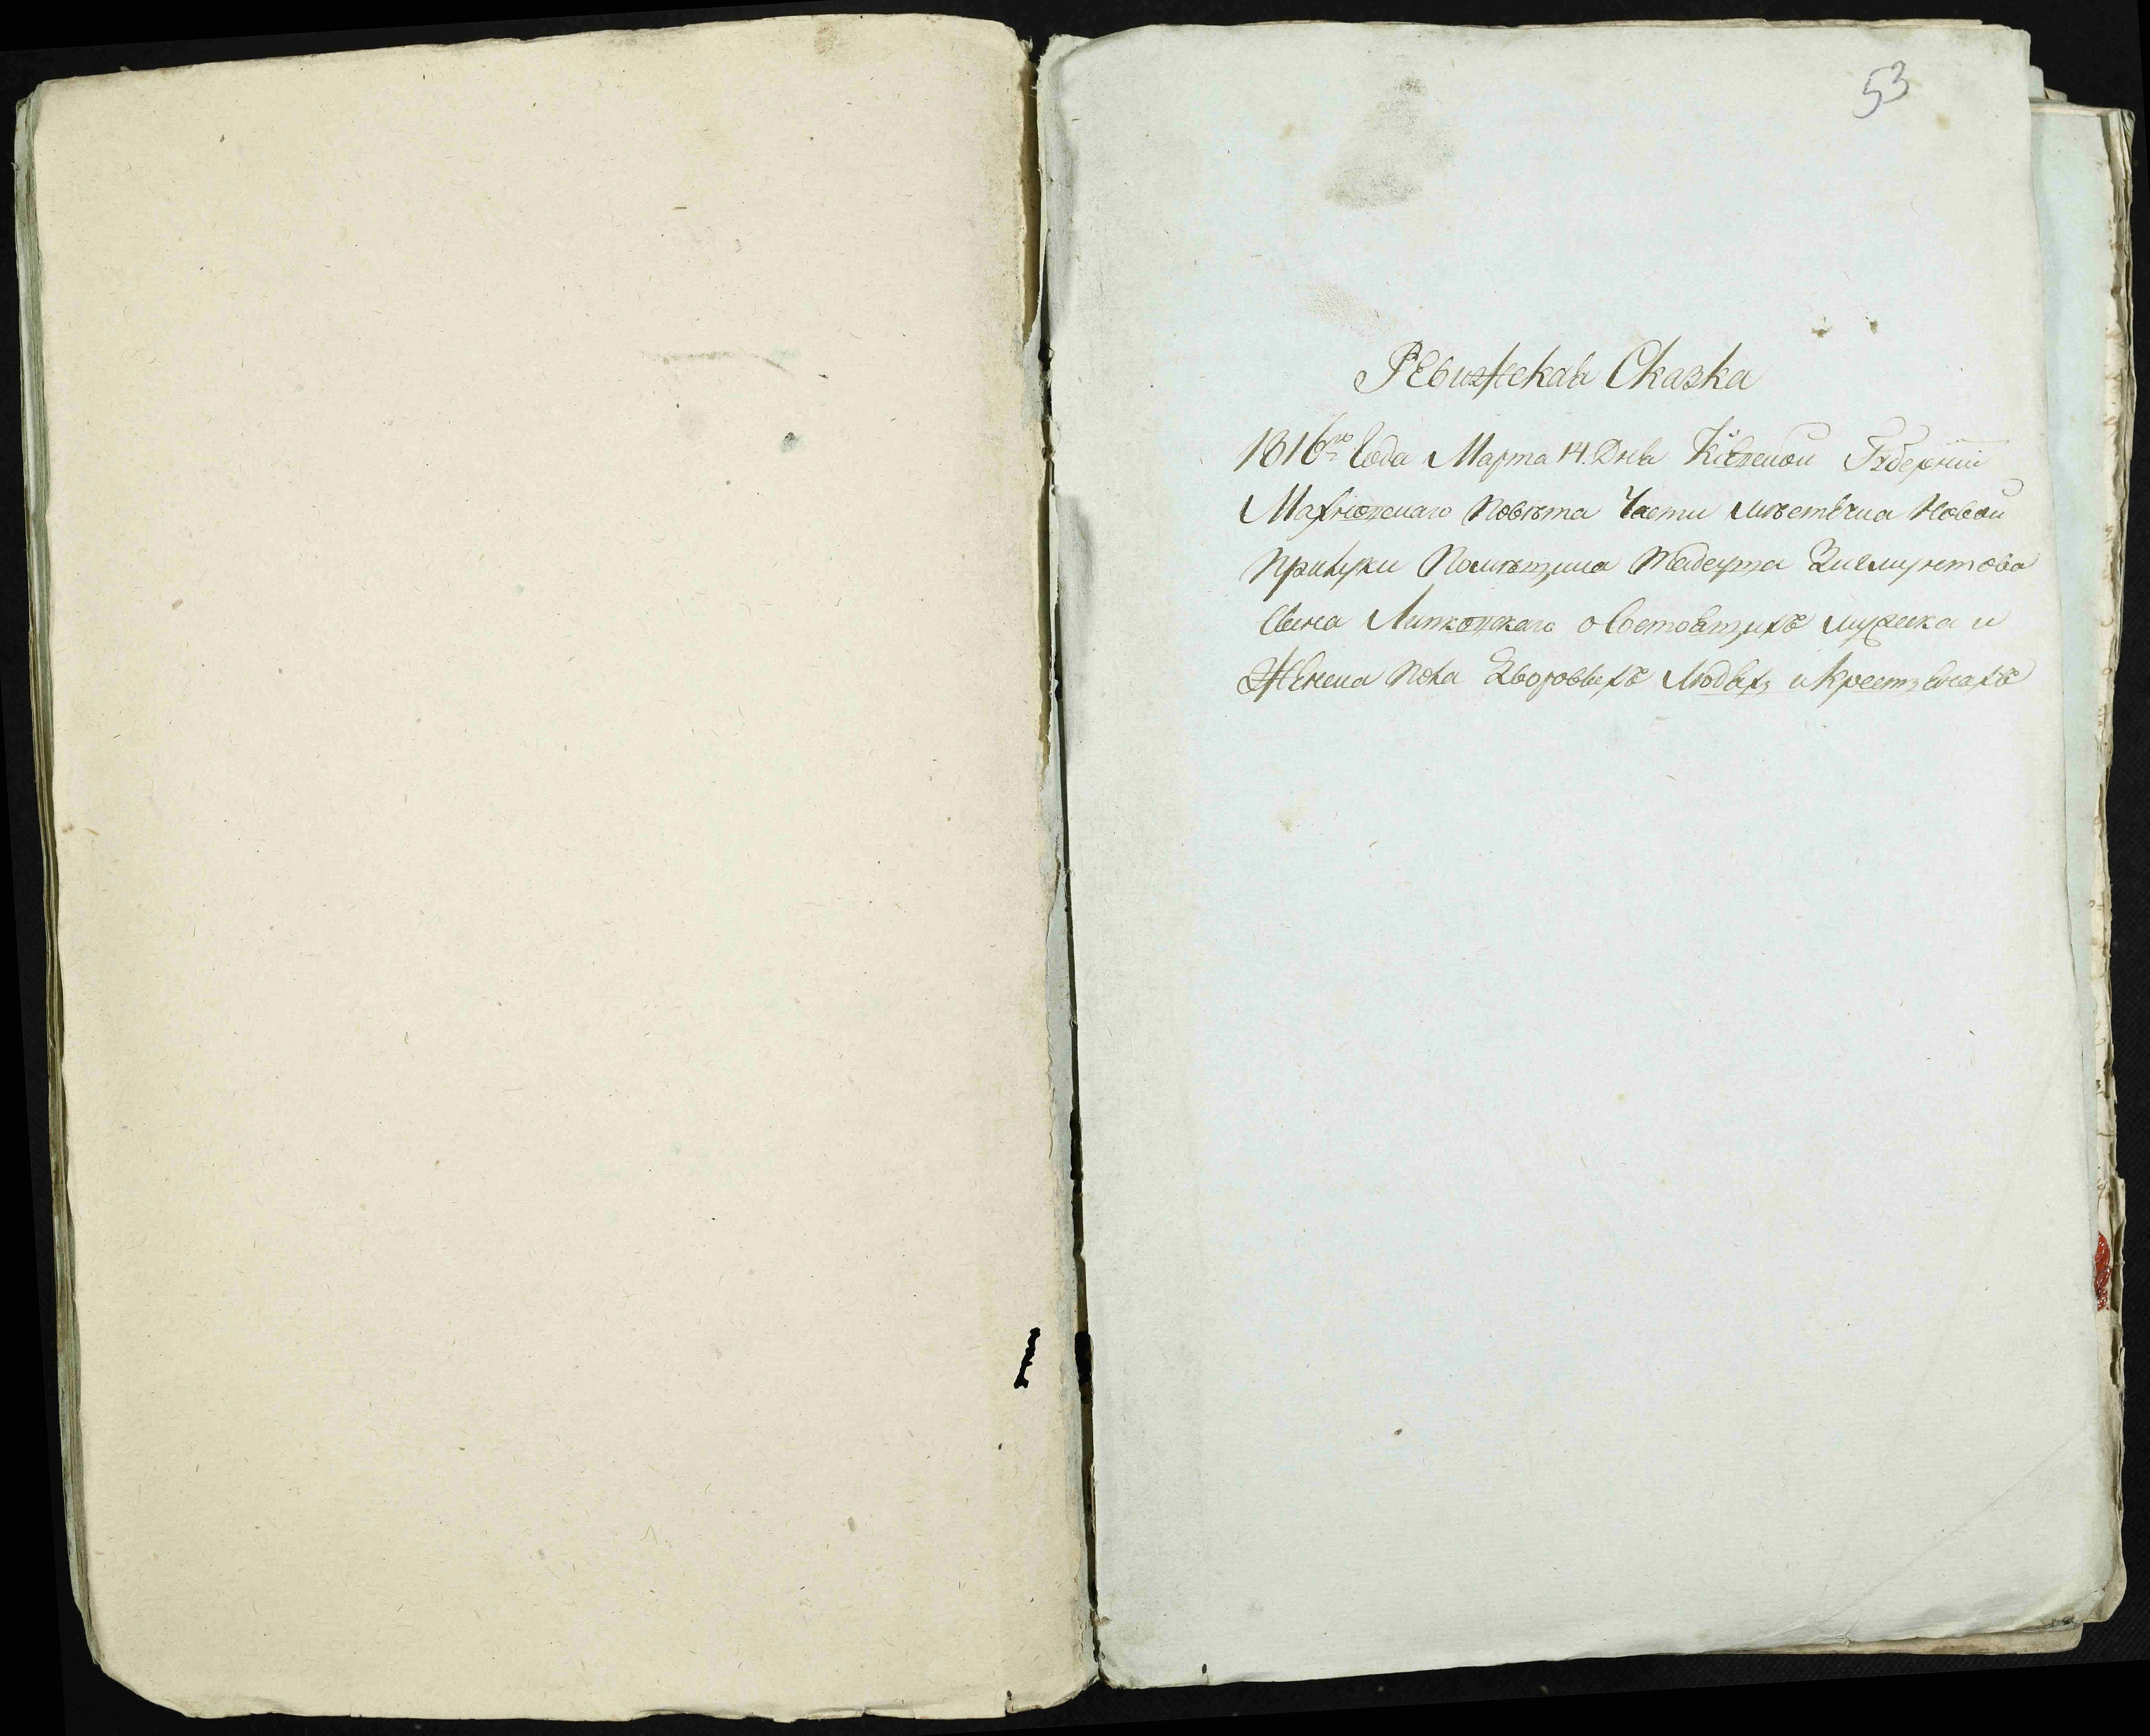 53
Ревижская Сказка
1816го Года Марта 14. Дня Кіевской Губерніи
Махновскаго Повѣта Части мѣстечка Новой
Прилуки Помѣщика Тадеуша
Сына Липковскаго о Состоящихъ мужеска и
Женска Пола Дворовыхъ Людяхъ и Крестьянахъ